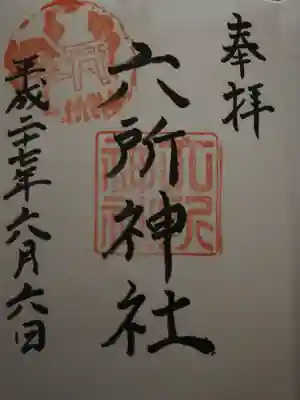 奉拝
六所神社
平成二十七年六月六日